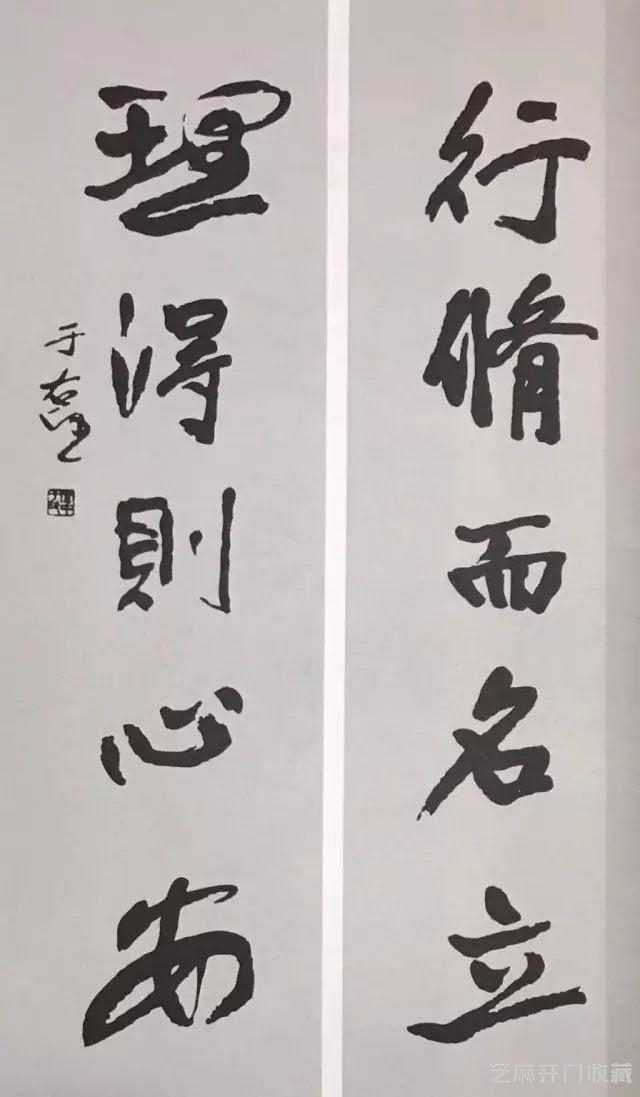 行脩而名立
理得則心安
于右任
芝麻开门收藏